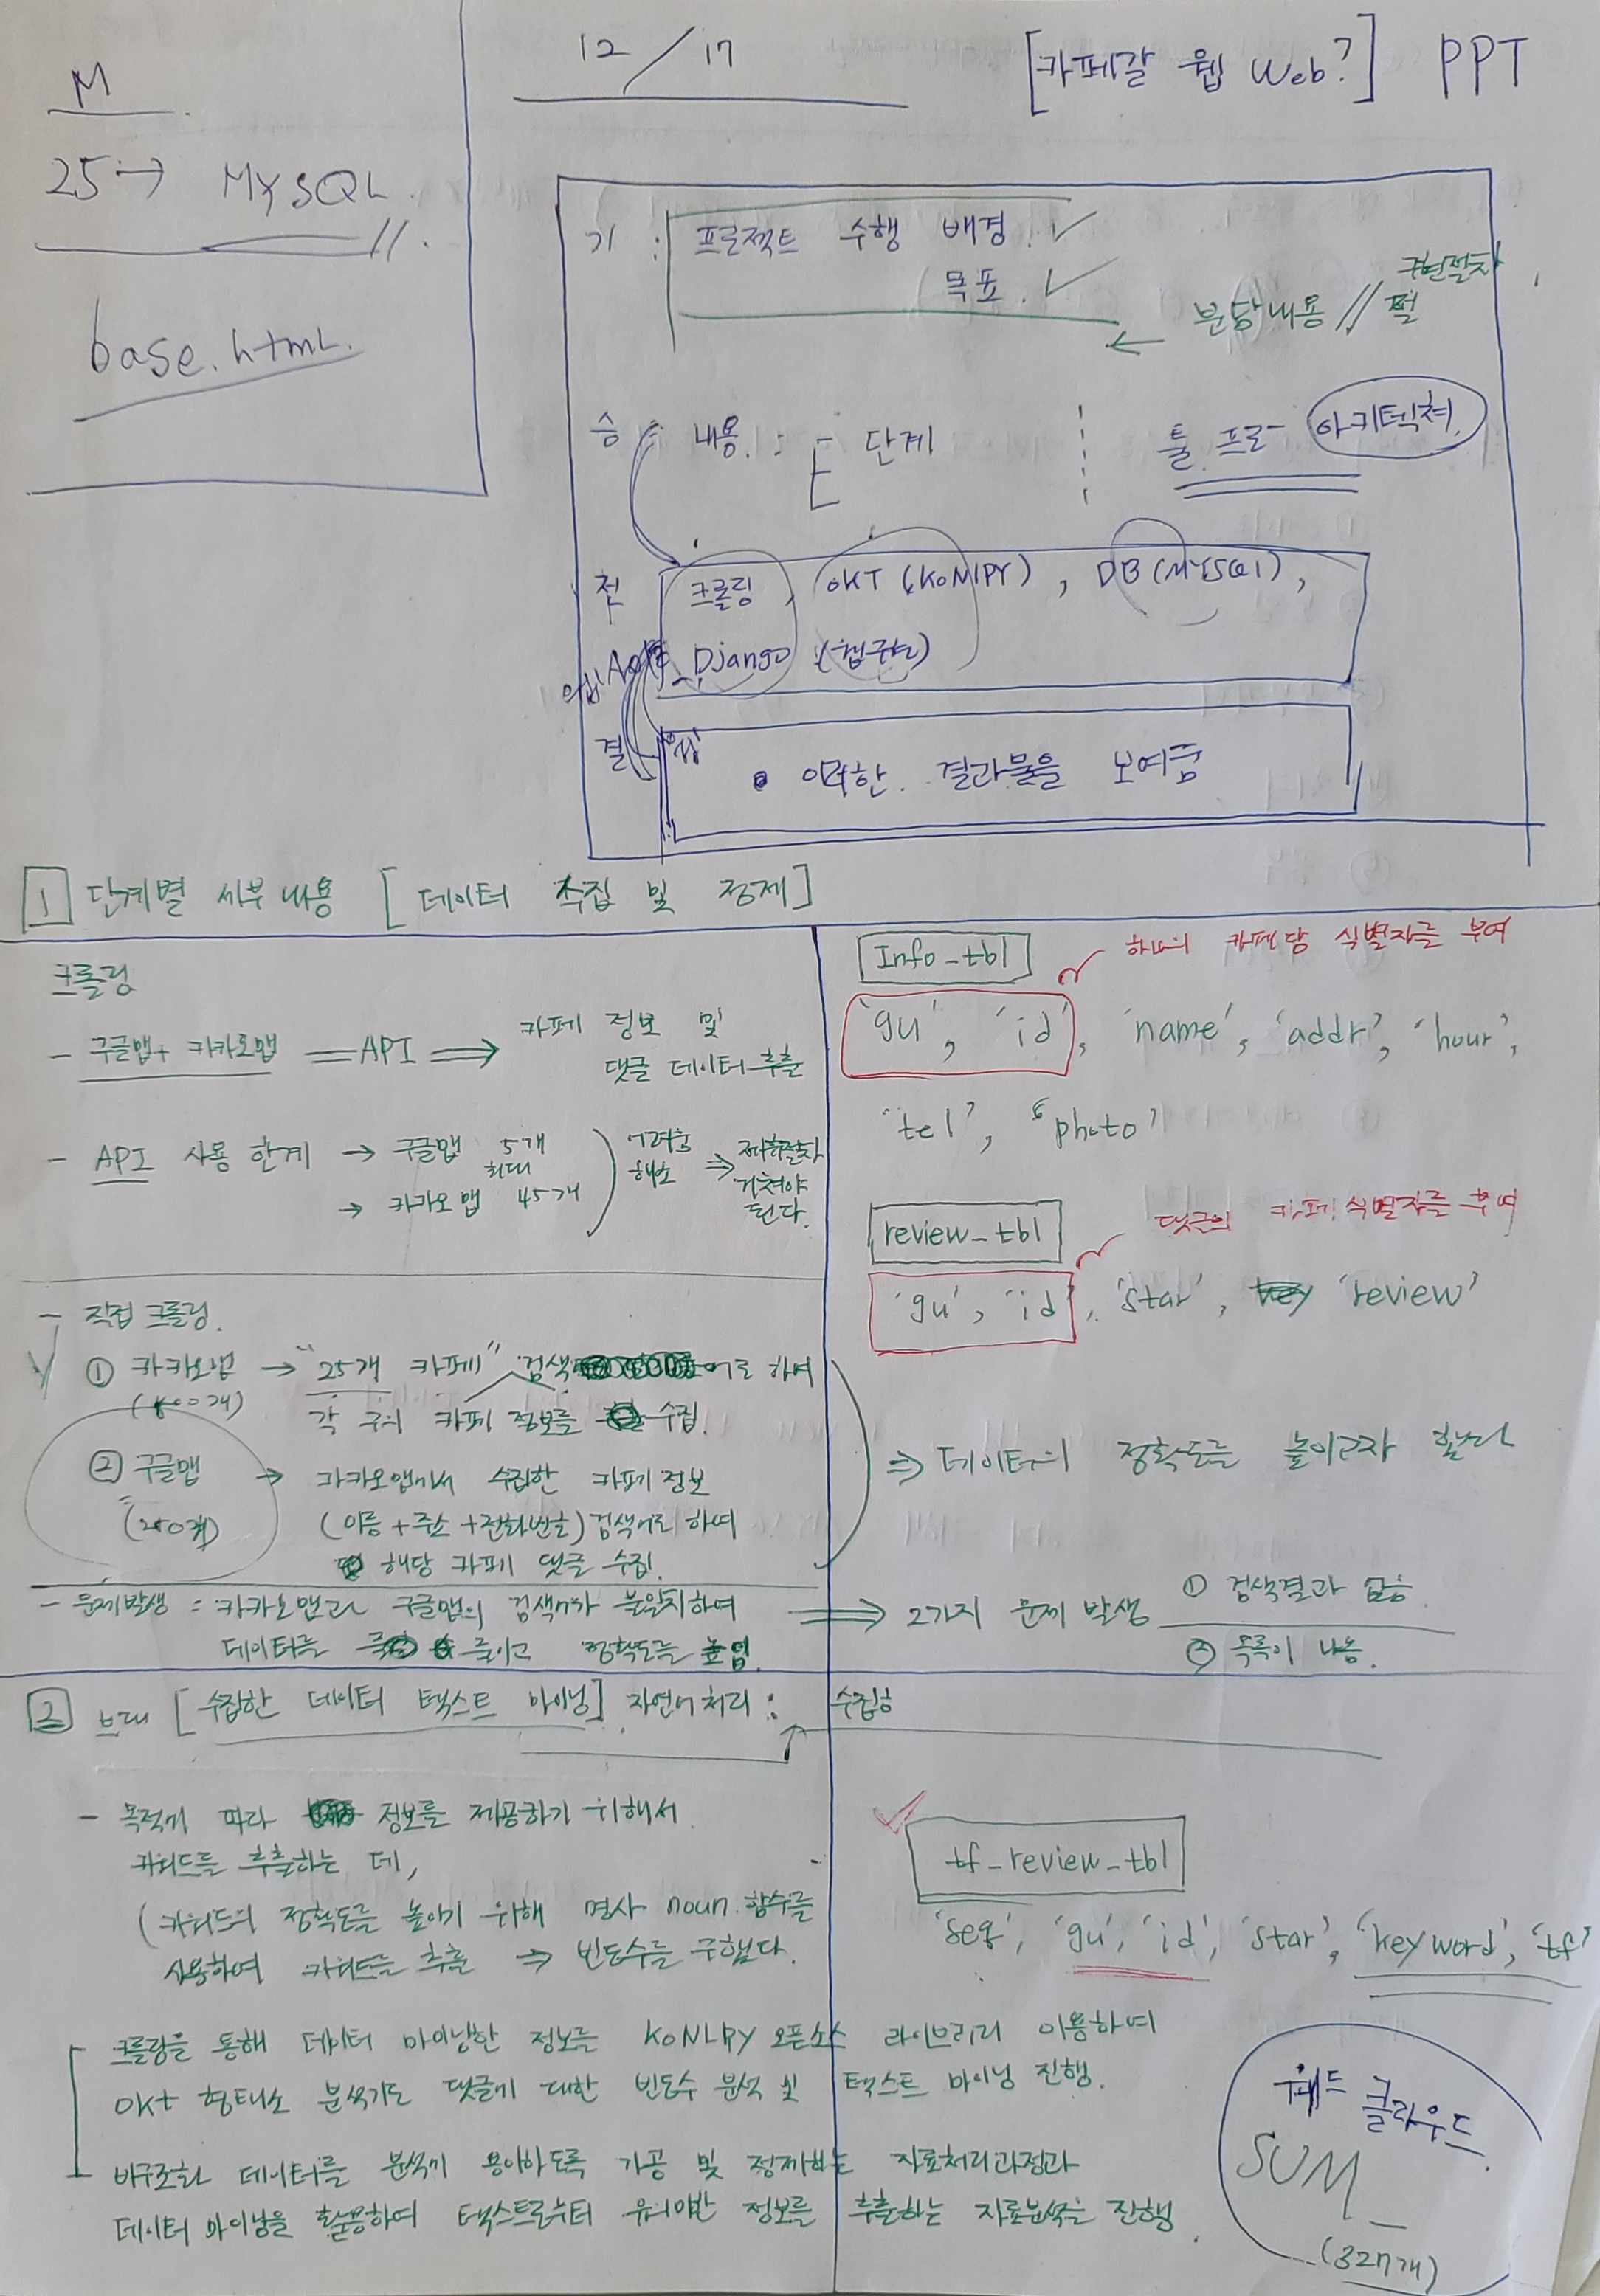 M
25 → MYSQL.
base.html.
12/17
[카페갈 웹 Web?] PPT
기 : 프로젝트 수행 배경. ✓
목표. ✓
← 분담내용 // 구현절차
승 : 내용. : 단계
툴. 프로- 아키텍쳐.
전 크롤링, OKT (KoNlPY), DB (MYSQl),
Django (웹구현)
결
• 이러한. 결과물을 보여줌
1 단계별 세부내용 [데이터 수집 및 정제]
크롤링
- 구글맵 + 카카오맵 = API ⇒ 카페 정보 및
댓글 데이터 추출
- API 사용 한계 → 구글맵 5개
최대
→ 카카오맵 45개
어려움
해소
⇒ 거쳐야
된다.
- 직접 크롤링.
① 카카오맵 → "25개 카페" 검색어로 하여
각 구의 카페 정보를 수집.
② 구글맵 → 카카오맵에서 수집한 카페 정보
(250개) (이름 + 주소 + 전화번호) 검색어로 하여
해당 카페 댓글 수집.
- 문제발생 : 카카오맵과 구글맵의 검색어가 불일치하여
데이터를 줄이고 정확도를 높임.
Info_tbl
하나의 카페당 식별자를 부여
'gu', 'id', 'name', 'addr', 'hour',
'tel', 'photo'
review_tbl
댓글의 카페 식별자를 부여
'gu', 'id', 'star', 'review'
⇒ 데이터의 정확도를 높이고자 했다
⇒ 2가지 문제 발생 ① 검색결과 없음
② 목록이 나옴.
2 [수집한 데이터 텍스트 마이닝] 자연어처리 : 수집한
- 목적에 따라 정보를 제공하기 위해서
키워드를 추출하는 데,
(키워드의 정확도를 높이기 위해 명사 noun 함수를
사용하여 키워드를 추출 ⇒ 빈도수를 구했다.
tf_review_tbl
'seq', 'gu', 'id', 'star', 'keyword', 'tf'
크롤링을 통해 데이터 마이닝한 정보를 KoNLPy 오픈소스 라이브러리 이용하여
OKt 형태소 분석기로 댓글에 대한 빈도수 분석 및 텍스트 마이닝 진행.
비구조화 데이터를 분석에 용이하도록 가공 및 정제하는 자료처리과정과
데이터 마이닝을 활용하여 텍스트로부터 유의미한 정보를 추출하는 자료분석을 진행.
워드 클라우드.
SUM_
(327개)